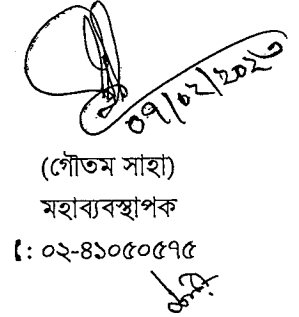 ০৭/০২/২০২৩
(গৌতম সাহা)
মহাব্যবস্থাপক
: ০২-৪১০৫০৫৭৫